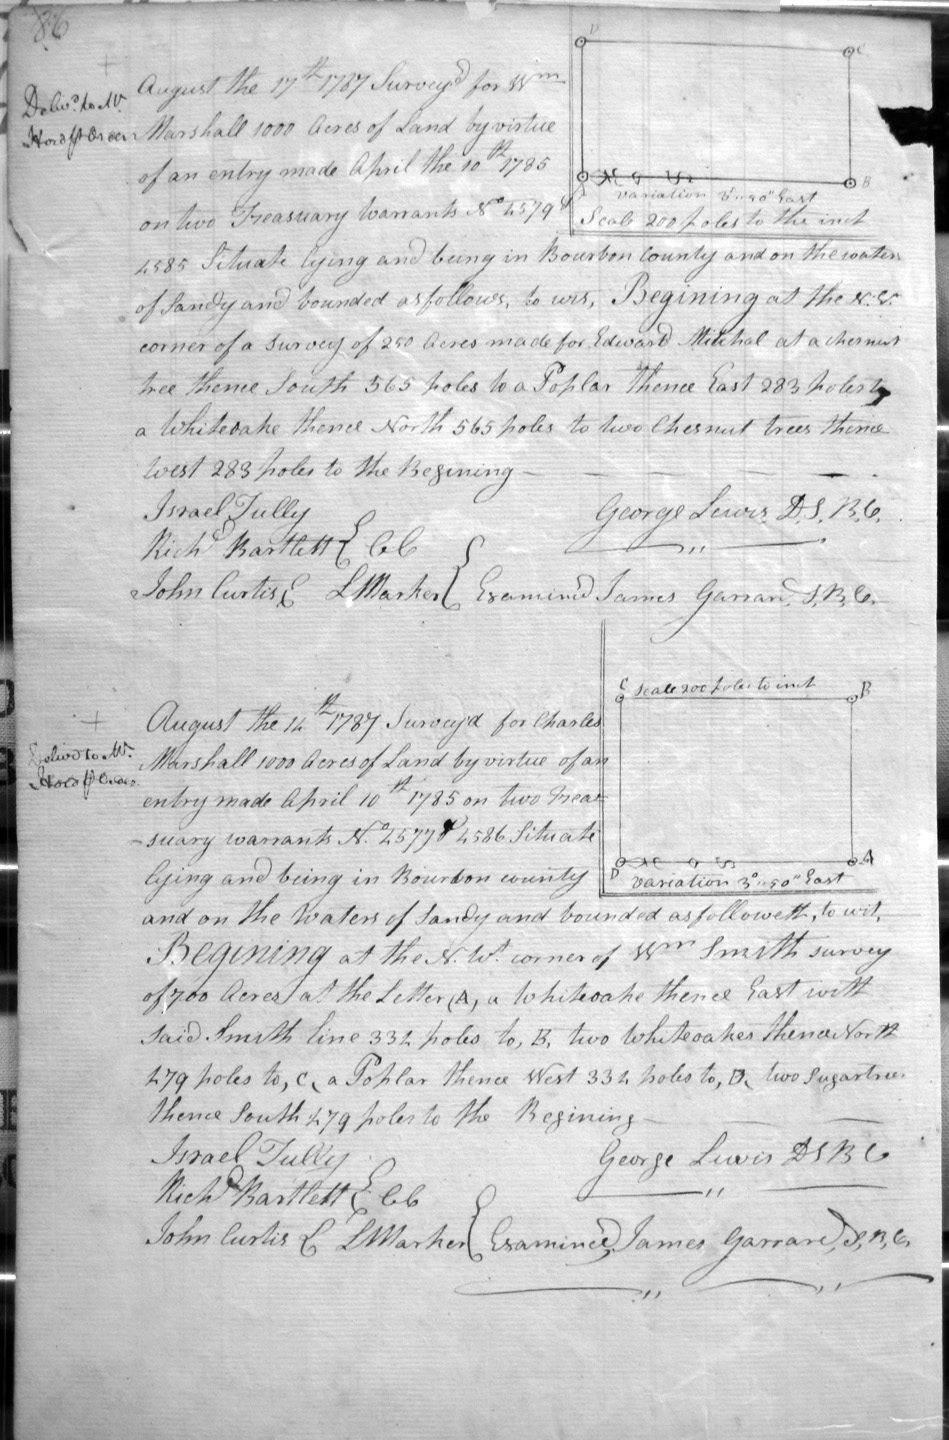 86
D
C
Deliv.d to Mr.
Hord pr Order
August the 17th 1787 Survey'd for Wm
Marshall 1000 Acres of Land by virtue
of an entry made April the 10th 1785
on two Treasuary warrants No 4579 &
B
variation 3° 50" East
Scale 200 poles to the inch
4585 Situate lying and being in Bourbon County and on the waters
of Sandy and bounded as follows, to wit, Begining at the N. W.
corner of a survey of 250 Acres made for Edward Mitchal at a chesnut
tree thence South 565 poles to a Poplar thence East 283 poles to
a Whiteoake thence North 565 poles to two Chesnut trees thence
West 283 poles to the Begining
Israel Tully
George Lewis D. S. B. C.
Richd Bartlett } CC
John Curtis } L Marker } Examined James Garrard, S. B. C.
C scale 200 poles to inch B
Deliv.d to Mr.
Hord pr Order
August the 14th 1787 Survey'd for Charles
Marshall 1000 Acres of Land by virtue of an
entry made April 10th 1785 on two Trea-
-suary warrants No. 4577 & 4586 Situate
D A
lying and being in Bourbon county
variation 3° 50" East
and on the Waters of Sandy and bounded as followeth, to wit,
Begining at the N. Wt. corner of Wm Smith survey
of 700 Acres at the Letter (A, a Whiteoake thence East with
said Smith line 334 poles to, B, two Whiteoakes thence North
479 poles to, C, a Poplar thence West 334 poles to, D, two Sugartree
thence South 479 poles to the Begining
Israel Tully
George Lewis D S B C
Richd Bartlett } CC
John Curtis } L Marker } Examined, James Garrard, S. B. C.